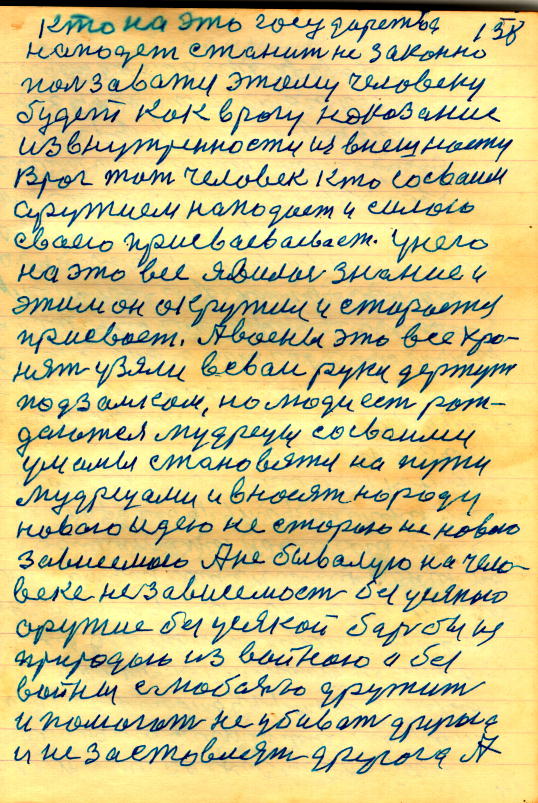 Кто на это государства 158
нападет станит не законно
ползавати этому человеку
будет как врагу наказание
извнутренности из внешности
Враг тот человек кто сосваим
аружием нападает и силою
сваею присваеваевает. Унего
на это все явилос знание и
этим он окружил и стараетця
присвает. А воены это все хра-
нят узяли всваи руки держут
подзамком, но люди ест рож-
даются мудрецы сосваими
умамы становятя на пути
мудрецами и вносят народу
новаю идею не старою не новаю
зависемаю А не бывалую на чело-
веке не зависемост без усякаго
оружие без усякой барбы из
природаю из вайною а без
вайны слюбовю дружит
и помогат не убиват другога
и не заставлят другога А